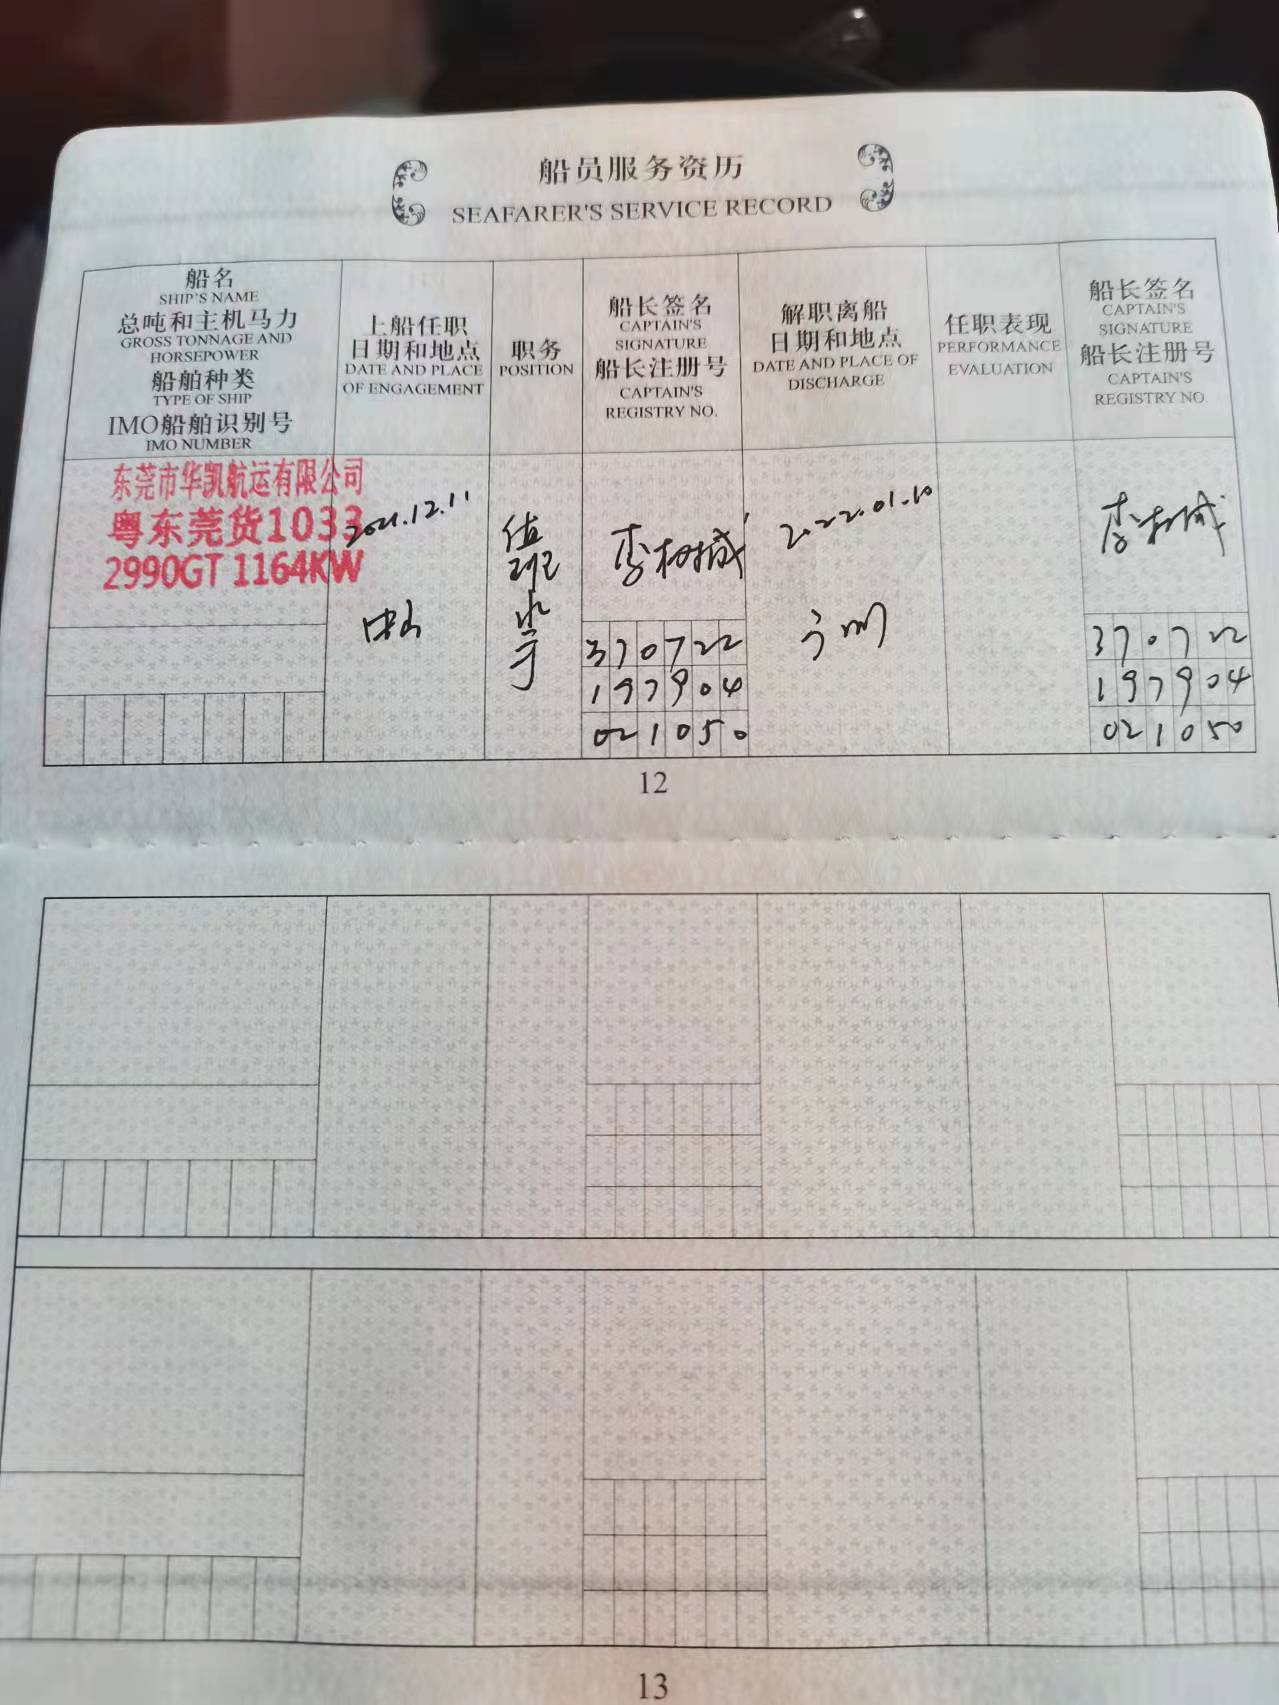 船员服务资历
SEAFARER'S SERVICE RECORD
船名
SHIP'S NAME
总吨和主机马力
GROSS TONNAGE AND
HORSEPOWER
船舶种类
TYPE OF SHIP
IMO船舶识别号
IMO NUMBER
上船任职
日期和地点
DATE AND PLACE
OF ENGAGEMENT
职务
POSITION
船长签名
CAPTAIN'S
SIGNATURE
船长注册号
CAPTAIN'S
REGISTRY NO.
解职离船
日期和地点
DATE AND PLACE OF
DISCHARGE
任职表现
PERFORMANCE
EVALUATION
船长签名
CAPTAIN'S
SIGNATURE
船长注册号
CAPTAIN'S
REGISTRY NO.
东莞市华凯航运有限公司
粤东莞货1033
2990GT 1164KW
2021.12.11
中山
值班水手
李树
370722
197904
021050
2022.01.10
广州
李树
370722
197904
021050
12
13